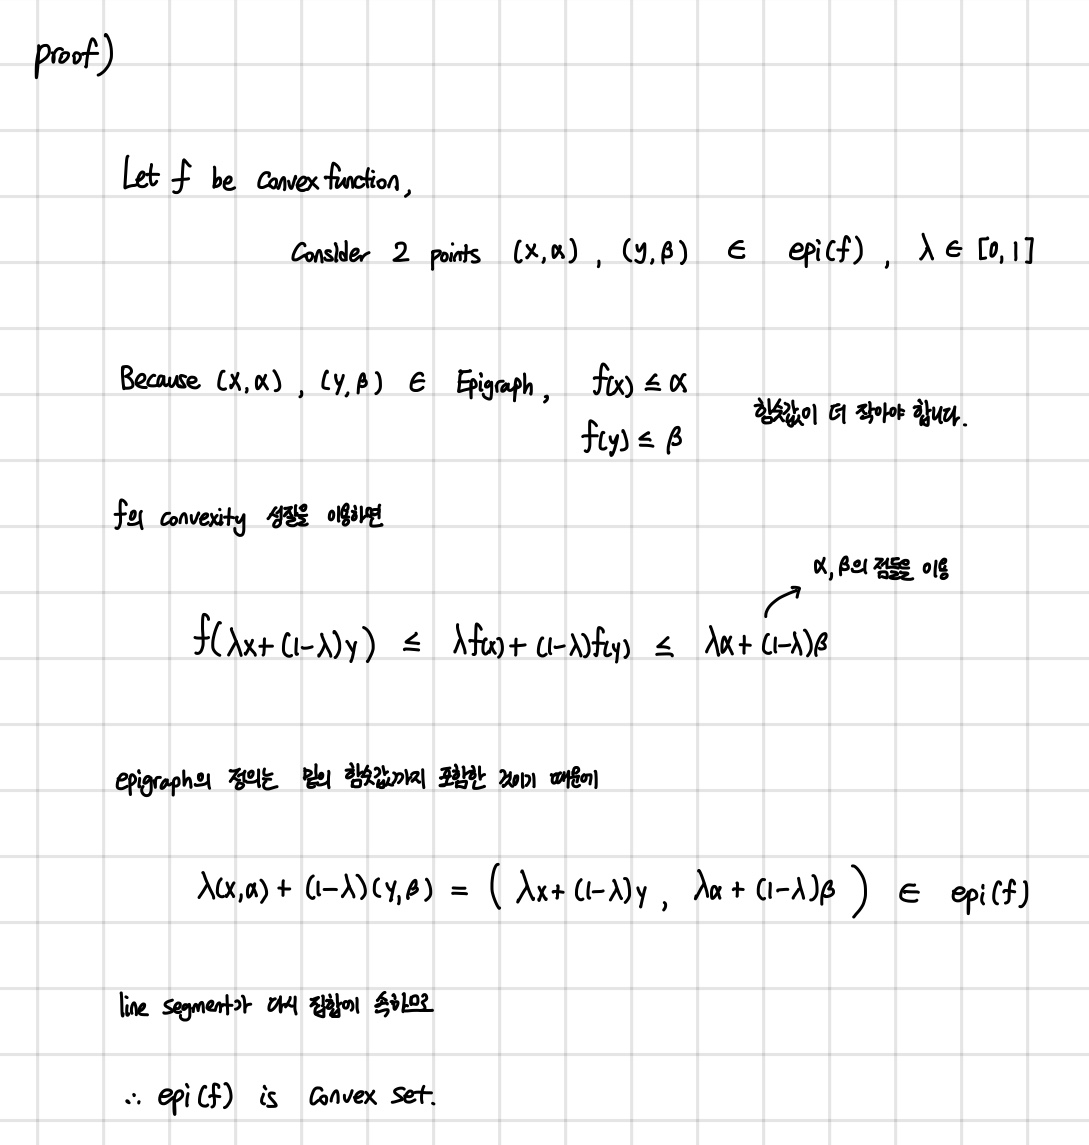 proof)
Let f be convex function,
Consider 2 points (x, α), (y, β) ∈ epi(f), λ ∈ [0, 1]
Because (x, α), (y, β) ∈ Epigraph, f(x) ≤ α
f(y) ≤ β
함숫값이 더 작아야 합니다.
f의 convexity 성질을 이용하면
α, β의 점들을 이용
f(λx + (1-λ)y) ≤ λf(x) + (1-λ)f(y) ≤ λα + (1-λ)β
epigraph의 정의는 밑의 함숫값까지 포함한 것이기 때문에
λ(x, α) + (1-λ)(y, β) = (λx + (1-λ)y, λα + (1-λ)β) ∈ epi(f)
line segment가 다시 집합에 속하므로
∴ epi(f) is convex set.